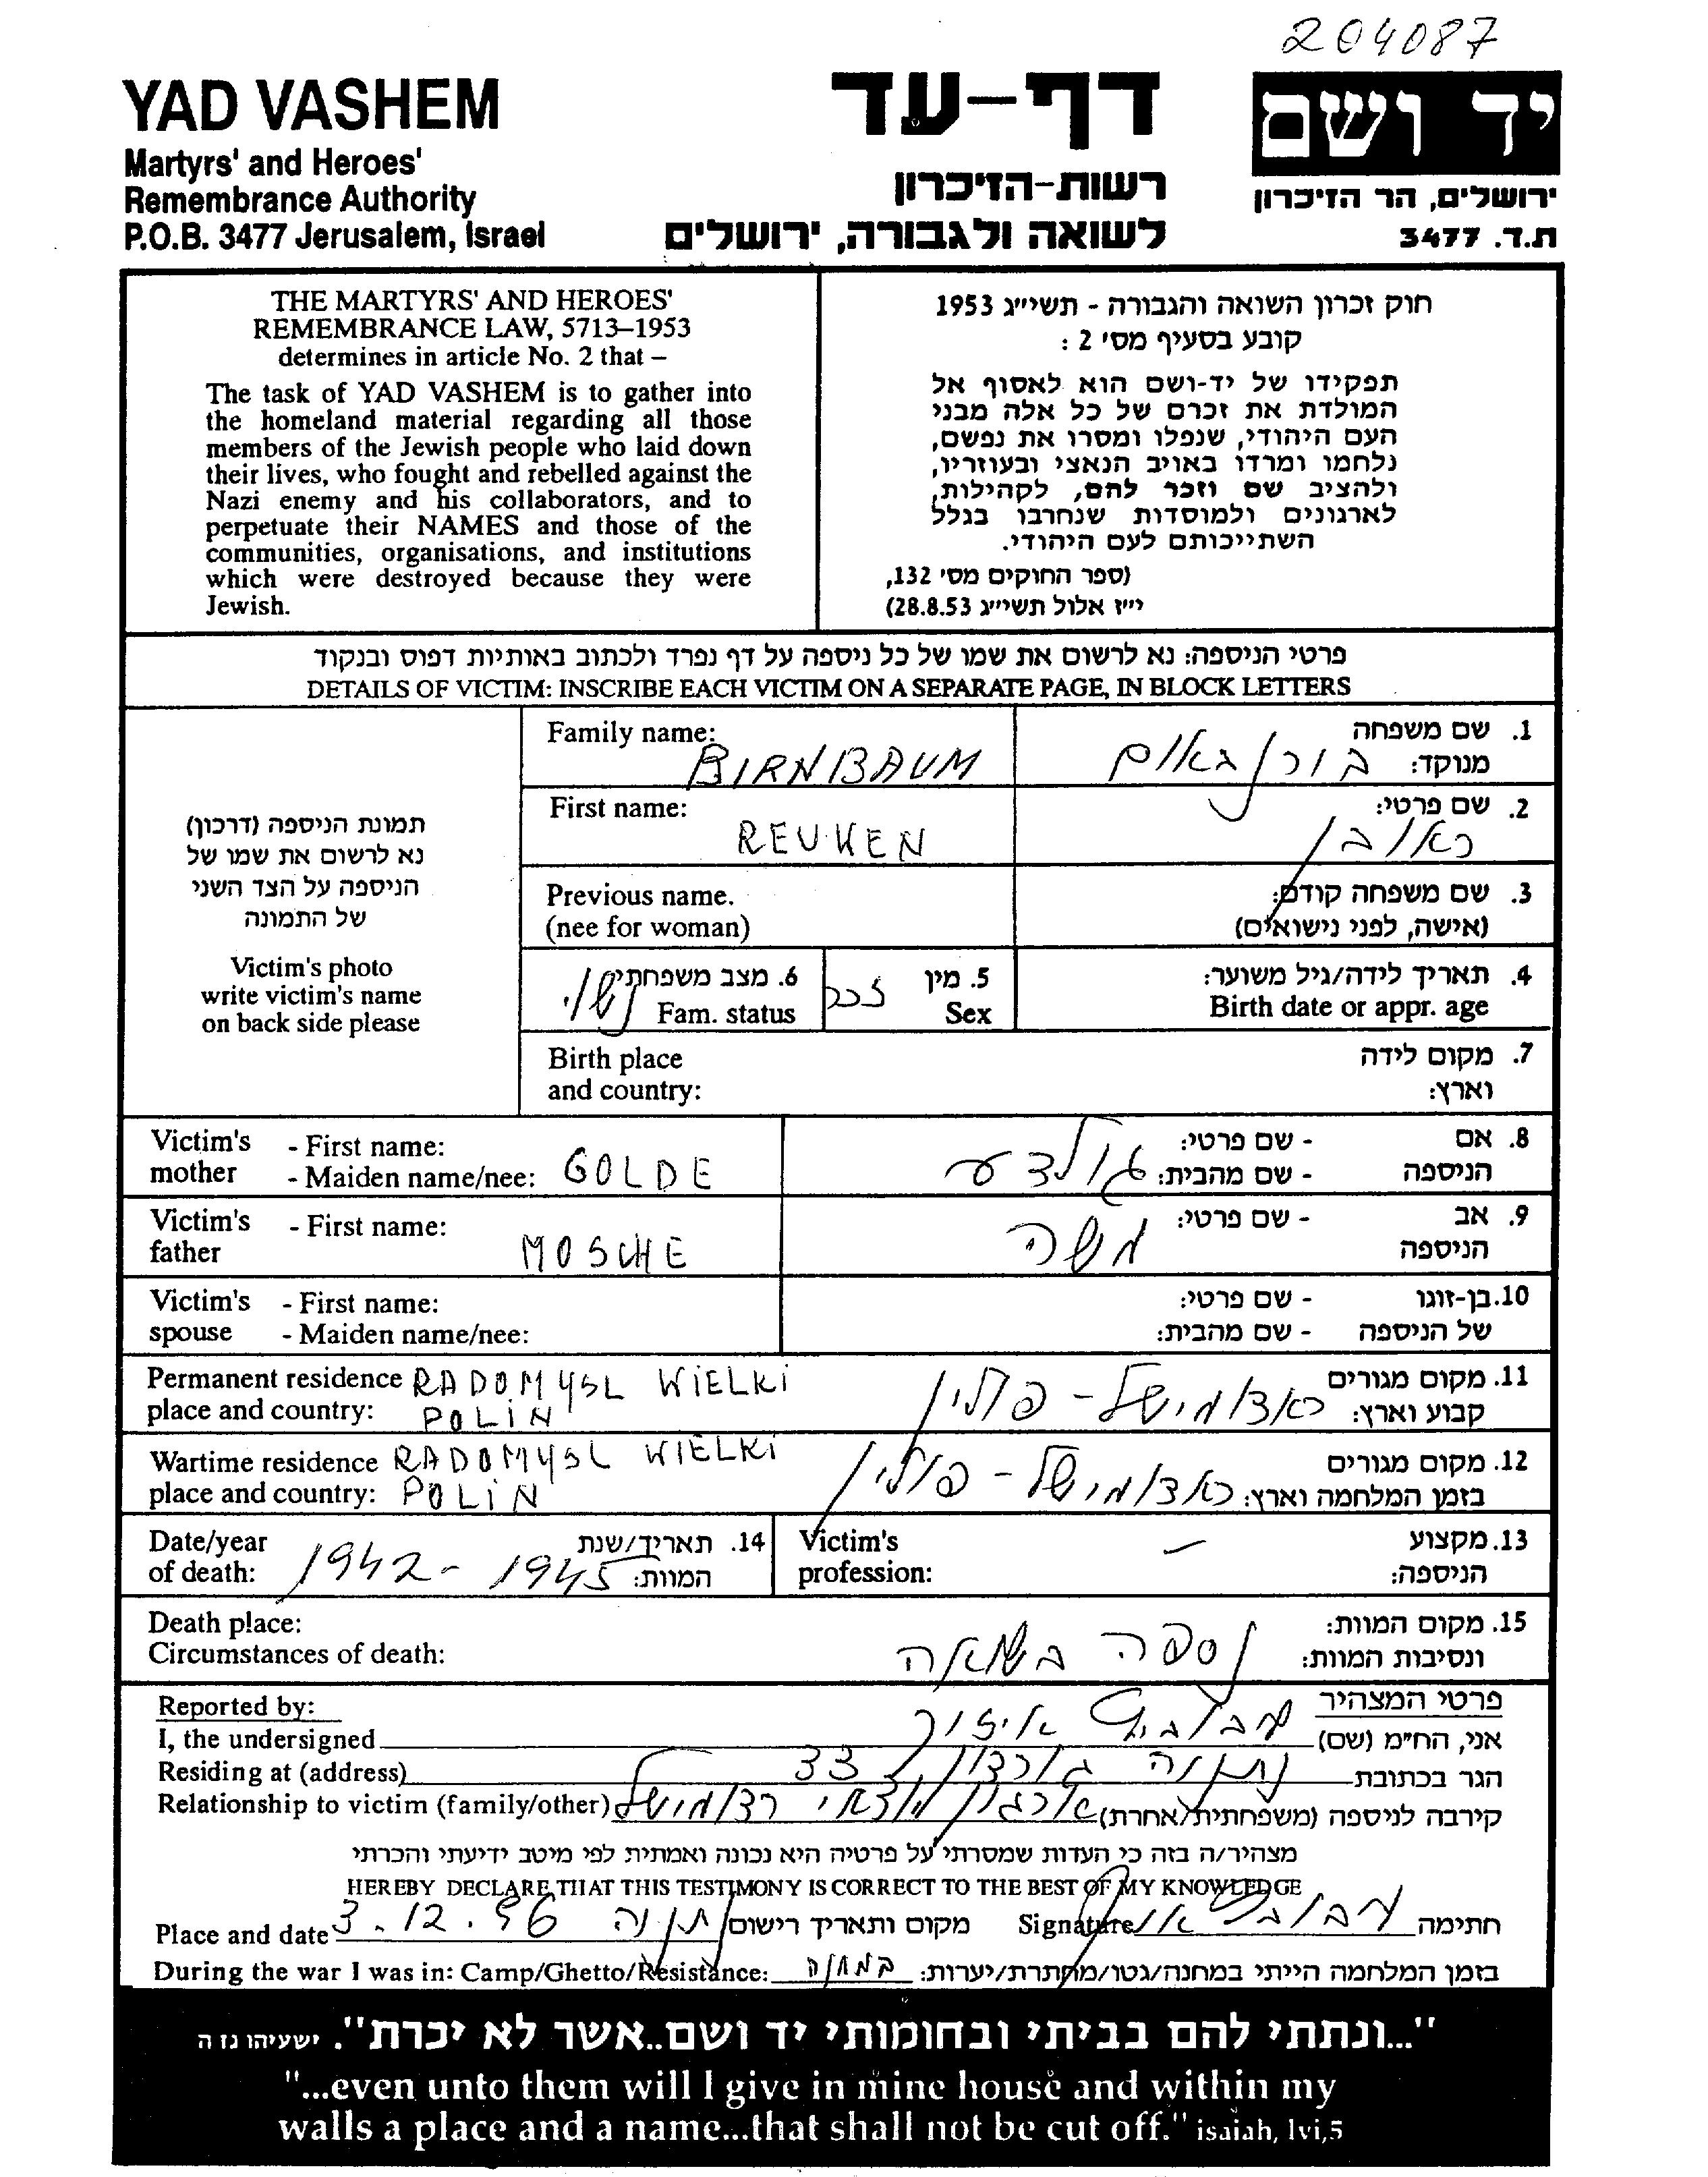 204087
YAD VASHEM
Martyrs' and Heroes'
Remembrance Authority
P.O.B. 3477 Jerusalem, Israel
דף-עד
רשות-הזיכרון
לשואה ולגבורה, ירושלים
יד ושם
ירושלים, הר הזיכרון
ת.ד. 3477
THE MARTYRS' AND HEROES'
REMEMBRANCE LAW, 5713–1953
determines in article No. 2 that –
The task of YAD VASHEM is to gather into
the homeland material regarding all those
members of the Jewish people who laid down
their lives, who fought and rebelled against the
Nazi enemy and his collaborators, and to
perpetuate their NAMES and those of the
communities, organisations, and institutions
which were destroyed because they were
Jewish.
חוק זכרון השואה והגבורה - תשי״ג 1953
קובע בסעיף מס׳ 2 :
תפקידו של יד-ושם הוא לאסוף אל
המולדת את זכרם של כל אלה מבני
העם היהודי, שנפלו ומסרו את נפשם,
נלחמו ומרדו באויב הנאצי ובעוזריו,
ולהציב שם וזכר להם, לקהילות,
לארגונים ולמוסדות שנחרבו בגלל
השתייכותם לעם היהודי.
(ספר החוקים מס׳ 132,
י״ז אלול תשי״ג 28.8.53)
פרטי הניספה: נא לרשום את שמו של כל ניספה על דף נפרד ולכתוב באותיות דפוס ובנקוד
DETAILS OF VICTIM: INSCRIBE EACH VICTIM ON A SEPARATE PAGE, IN BLOCK LETTERS
תמונת הניספה (דרכון)
נא לרשום את שמו של
הניספה על הצד השני
של התמונה
Victim's photo
write victim's name
on back side please
Family name: BIRNBAUM
1. שם משפחה
מנוקד: בורנבאום
First name: REUWEN
2. שם פרטי:
ראובן
Previous name.
(nee for woman)
3. שם משפחה קודם:
(אישה, לפני נישואים)
6. מצב משפחתי
Fam. status נשוי
5. מין זכר
Sex
4. תאריך לידה/גיל משוער:
Birth date or appr. age
Birth place
and country:
7. מקום לידה
וארץ:
Victim's - First name:
mother - Maiden name/nee: GOLDE
8. אם - שם פרטי:
הניספה - שם מהבית: גולדע
Victim's - First name:
father MOSCHE
9. אב - שם פרטי:
הניספה משה
Victim's - First name:
spouse - Maiden name/nee:
10. בן-זוגו - שם פרטי:
של הניספה - שם מהבית:
Permanent residence RADOMYSL WIELKI
place and country: POLIN
11. מקום מגורים
קבוע וארץ: ראדומישל - פולין
Wartime residence RADOMYSL WIELKI
place and country: POLIN
12. מקום מגורים
בזמן המלחמה וארץ: ראדומישל - פולין
Date/year
of death: 1942 - 1945
14. תאריך/שנת
המוות:
Victim's
profession: –
13. מקצוע
הניספה:
Death place:
Circumstances of death:
15. מקום המוות:
ונסיבות המוות: נספה בשואה
Reported by:
פרטי המצהיר
I, the undersigned
אני, הח״מ (שם)
Residing at (address)
הגר בכתובת נתניה גורדון 33
Relationship to victim (family/other)
קירבה לניספה (משפחתית/אחרת) ארגון יוצאי רדומישל
מצהיר/ה בזה כי העדות שמסרתי על פרטיה היא נכונה ואמתית לפי מיטב ידיעתי והכרתי
HEREBY DECLARE THAT THIS TESTIMONY IS CORRECT TO THE BEST OF MY KNOWLEDGE
Place and date 3.12.96 נתניה מקום ותאריך רישום
Signature חתימה
During the war I was in: Camp/Ghetto/Resistance:
במחנה בזמן המלחמה הייתי במחנה/גטו/מחתרת/יערות:
"...ונתתי להם בביתי ובחומותי יד ושם..אשר לא יכרת". ישעיהו נז ה
"...even unto them will I give in mine house and within my
walls a place and a name...that shall not be cut off." isaiah, lvi,5